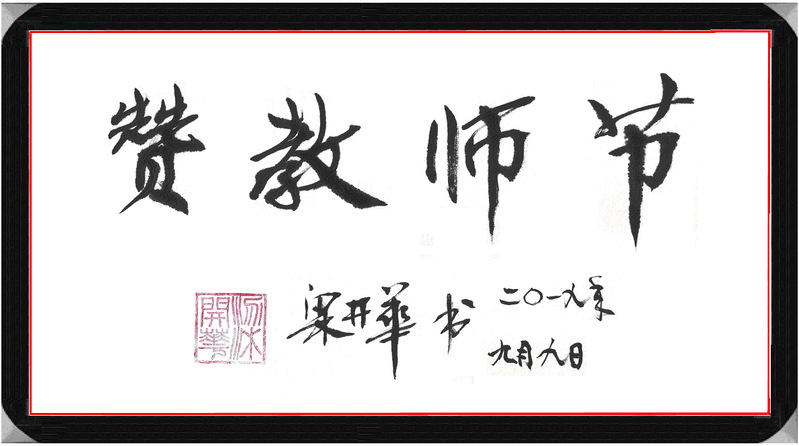 赞教师节
梁开華书
二〇一九年
九月九日
開華